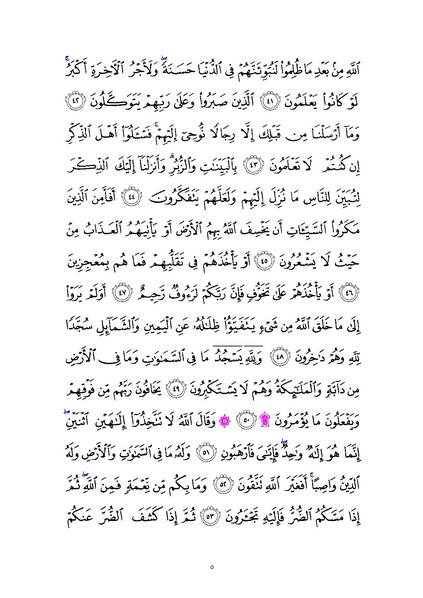 ٱللَّهِ مِنۢ بَعْدِ مَا ظُلِمُوا۟ لَنُبَوِّئَنَّهُمْ فِى ٱلدُّنْيَا حَسَنَةً ۖ وَلَأَجْرُ ٱلْـَٔاخِرَةِ أَكْبَرُ ۚ
لَوْ كَانُوا۟ يَعْلَمُونَ ٤١ ٱلَّذِينَ صَبَرُوا۟ وَعَلَىٰ رَبِّهِمْ يَتَوَكَّلُونَ ٤٢
وَمَآ أَرْسَلْنَا مِن قَبْلِكَ إِلَّا رِجَالًا نُّوحِىٓ إِلَيْهِمْ ۚ فَسْـَٔلُوٓا۟ أَهْلَ ٱلذِّكْرِ
إِن كُنتُمْ لَا تَعْلَمُونَ ٤٣ بِٱلْبَيِّنَٰتِ وَٱلزُّبُرِ ۗ وَأَنزَلْنَآ إِلَيْكَ ٱلذِّكْرَ
لِتُبَيِّنَ لِلنَّاسِ مَا نُزِّلَ إِلَيْهِمْ وَلَعَلَّهُمْ يَتَفَكَّرُونَ ٤٤ أَفَأَمِنَ ٱلَّذِينَ
مَكَرُوا۟ ٱلسَّيِّـَٔاتِ أَن يَخْسِفَ ٱللَّهُ بِهِمُ ٱلْأَرْضَ أَوْ يَأْتِيَهُمُ ٱلْعَذَابُ مِنْ
حَيْثُ لَا يَشْعُرُونَ ٤٥ أَوْ يَأْخُذَهُمْ فِى تَقَلُّبِهِمْ فَمَا هُم بِمُعْجِزِينَ
٤٦ أَوْ يَأْخُذَهُمْ عَلَىٰ تَخَوُّفٍ فَإِنَّ رَبَّكُمْ لَرَءُوفٌ رَّحِيمٌ ٤٧ أَوَلَمْ يَرَوْا۟
إِلَىٰ مَا خَلَقَ ٱللَّهُ مِن شَىْءٍ يَتَفَيَّؤُا۟ ظِلَٰلُهُۥ عَنِ ٱلْيَمِينِ وَٱلشَّمَآئِلِ سُجَّدًا
لِّلَّهِ وَهُمْ دَٰخِرُونَ ٤٨ وَلِلَّهِ يَسْجُدُ مَا فِى ٱلسَّمَٰوَٰتِ وَمَا فِى ٱلْأَرْضِ
مِن دَآبَّةٍ وَٱلْمَلَٰٓئِكَةُ وَهُمْ لَا يَسْتَكْبِرُونَ ٤٩ يَخَافُونَ رَبَّهُم مِّن فَوْقِهِمْ
وَيَفْعَلُونَ مَا يُؤْمَرُونَ ۩ ٥٠ ۞ وَقَالَ ٱللَّهُ لَا تَتَّخِذُوٓا۟ إِلَٰهَيْنِ ٱثْنَيْنِ ۖ
إِنَّمَا هُوَ إِلَٰهٌ وَٰحِدٌ ۖ فَإِيَّٰىَ فَٱرْهَبُونِ ٥١ وَلَهُۥ مَا فِى ٱلسَّمَٰوَٰتِ وَٱلْأَرْضِ وَلَهُ
ٱلدِّينُ وَاصِبًا ۚ أَفَغَيْرَ ٱللَّهِ تَتَّقُونَ ٥٢ وَمَا بِكُم مِّن نِّعْمَةٍ فَمِنَ ٱللَّهِ ۖ ثُمَّ
إِذَا مَسَّكُمُ ٱلضُّرُّ فَإِلَيْهِ تَجْـَٔرُونَ ٥٣ ثُمَّ إِذَا كَشَفَ ٱلضُّرَّ عَنكُمْ
٥